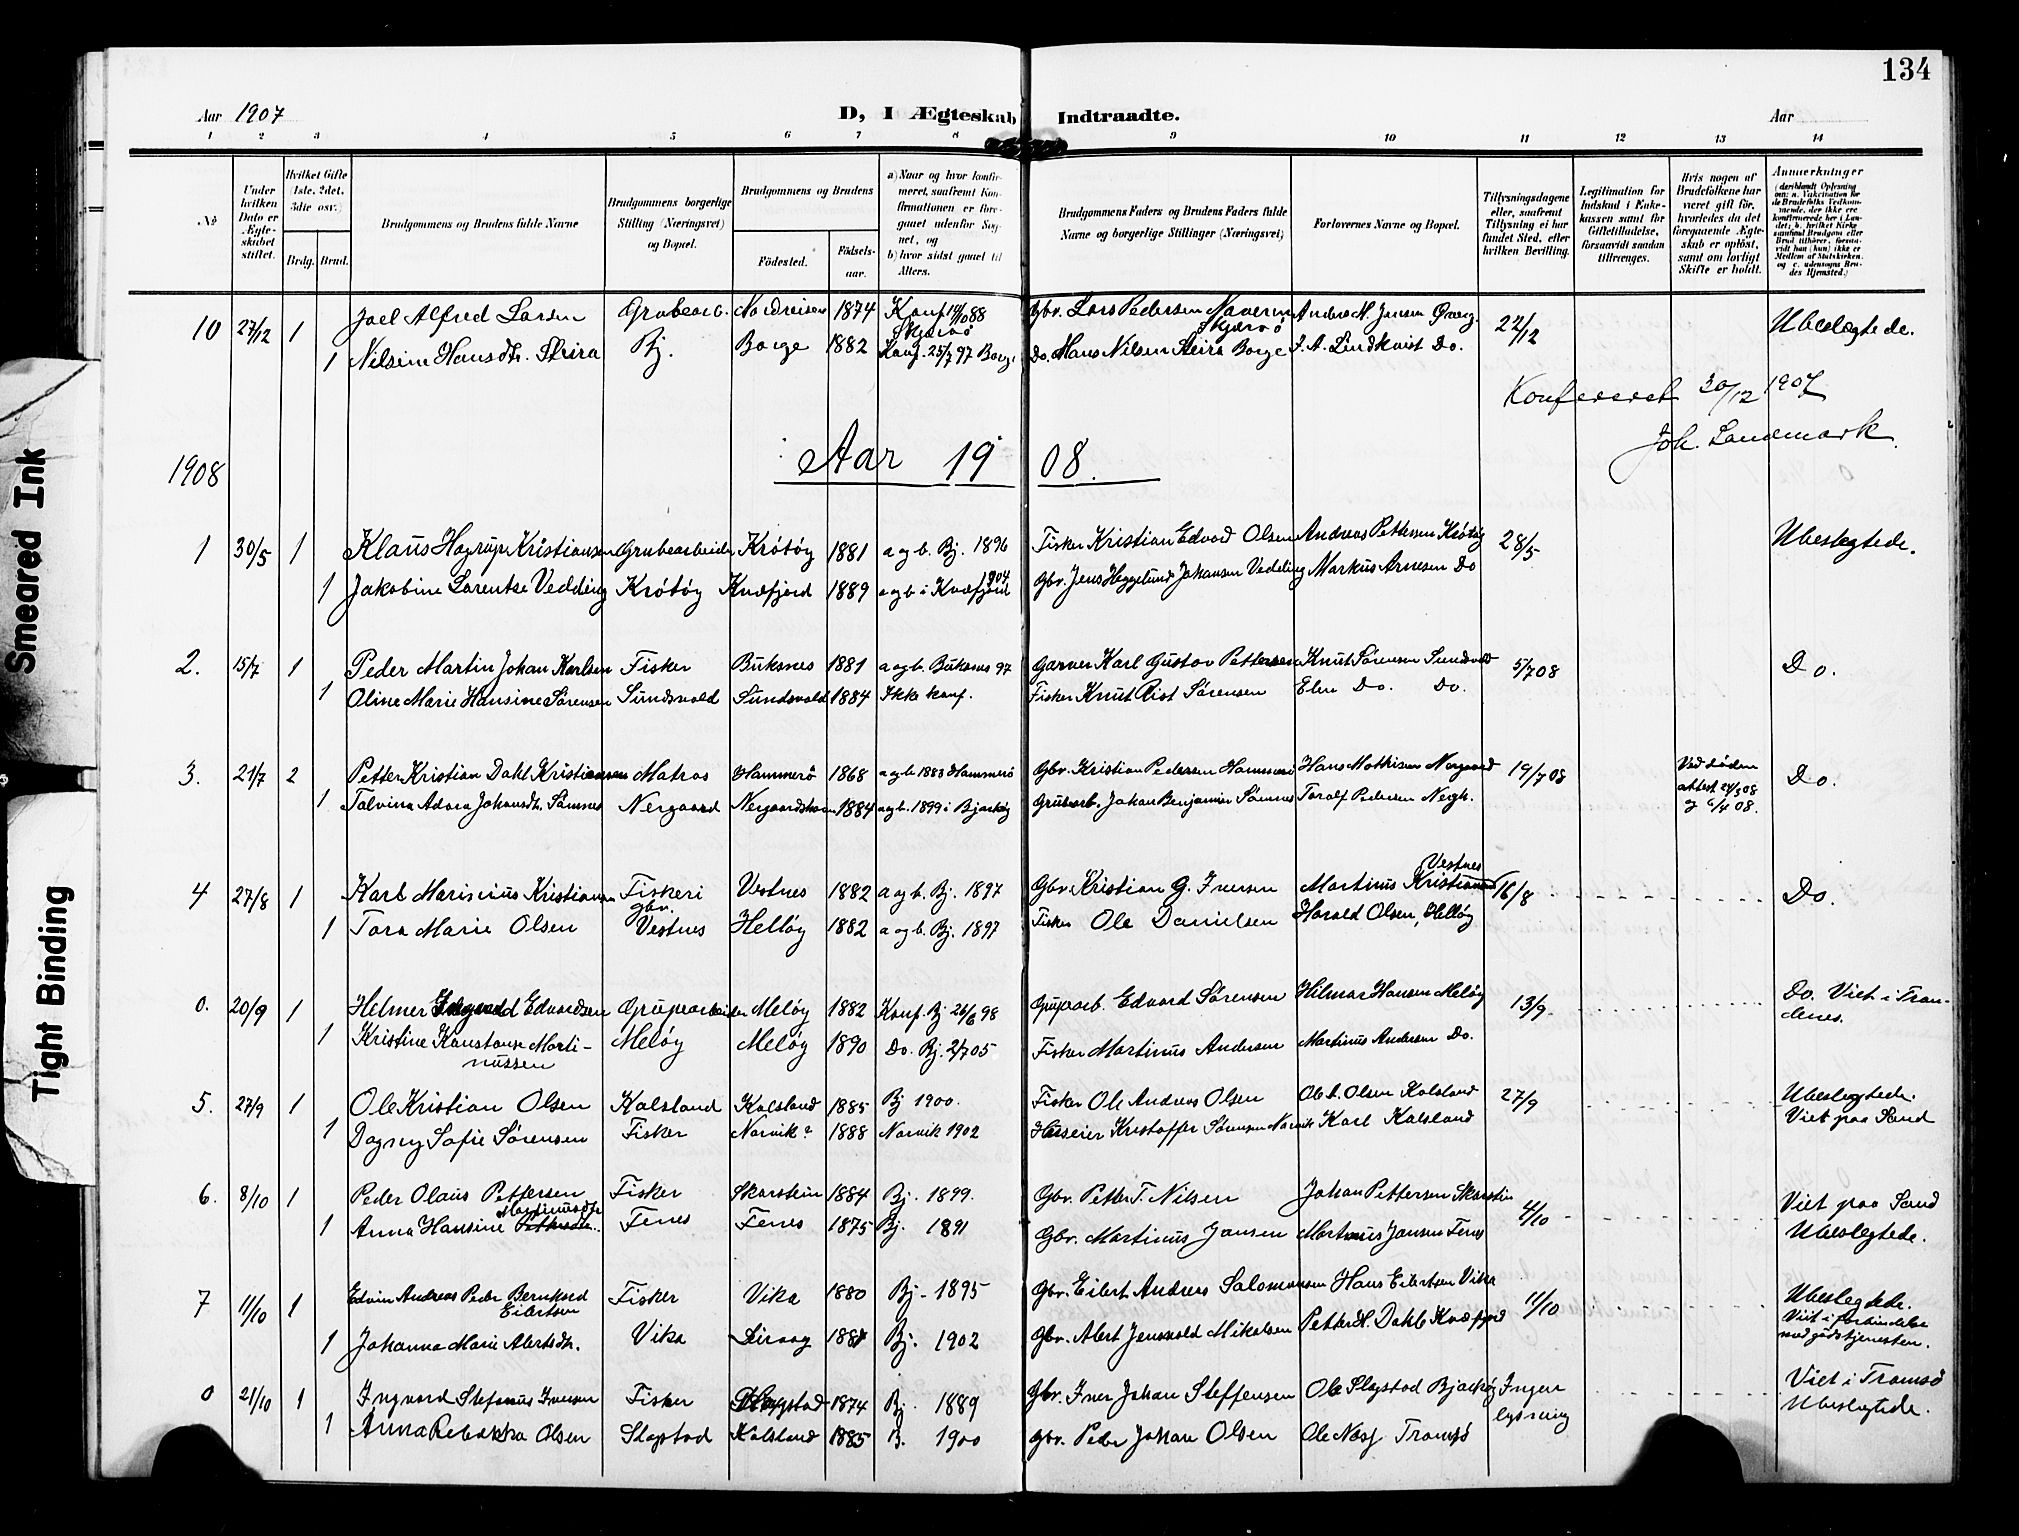 134
Aar 1907
D, I Ægteskab Indtraadte.
Aar
1 2 3 4 5 6 7 8 9 10 11 12 13 14
No
Under hvilken Dato er Ægteskabet stiftet.
Hvilket Gifte (1ste, 2det, 3die osv.)
Brdg. Brud.
Brudgommens og Brudens fulde Navne
Brudgommens borgerlige Stilling (Næringsvei) og Bopæl.
Brudgommens og Brudens
Födested.
Födsels-aar.
a) Naar og hvor konfirmeret, saafremt Konfirmationen er foregaaet udenfor Sognet, og
b) hvor sidst gaaet til Alters.
Brudgommens Faders og Brudens Faders fulde Navne og borgerlige Stillinger (Næringsvei)
Forlovernes Navne og Bopæl.
Tillysningsdagene eller, saafremt Tillysning ei har fundet Sted, efter hvilken Bevilling.
Legitimation for Indskud i Enkekassen samt for Giftetilladelse, forsaavidt saadan tiltrænges.
Hvis nogen af Brudefolkene har været gift för, hvorledes da det foregaaende Ægteskab er oplöst, samt om lovligt Skifte er holdt.
Anmerkninger
(deriblandt Oplysning om: a. Vakcination for de Brudefolks Vedkommende, der ikke ere konfirmerede her i Landet; b. hvilket Kirkesamfund Brudgom eller Brud tilhörer, forsaavidt han (hun) ikke er Medlem af Statskirken, og c. udensogns Brudes Hjemsted.)
10 27/12 1 Joel Alfred Larsen Grubearb. Nordreisen 1874 Konf. 14/10 88 Skjervö Gbr. Lars Pedersen Skjervö Anders N. Jensen 22/12 Ubeslægtede.
1 Nilsine Hansdtr. Bj. Borge 1882 Konf. 25/7 97 Borge Do. Hans Nilsen Borge J. A. Lindkvist Do.
Konfereret 30/12 1907
Joh. Landmark
Aar 1908.
1908
1 30/5 1 Klaus Hagrup Kristiansen Grubearbeider Krötöy 1881 a og b. Bj. 1896 Fisker Kristian Edvard Olsen Andreas Pettersen Krötöy 28/5 Ubeslegtede.
1 Jakobine Larentse Vedding Krötöy Kvæfjord 1889 a og b i Kvæfjord 904 Gbr. Jens Heggelund Johansen Vedding Markus Arnesen Do
2. 15/7 1 Peder Martin Johan Karlsen Fisker Buksnes 1881 a og b. Buksnes 97 Garver Karl Gustav Pettersen Knut Sørensen Sundsvold 5/7 08 Do.
1 Oline Marie Hansine Sørensen Sundsvold Sundsvold 1884 Ikke konf. Fisker Knut Rist Sørensen Do. Do.
3. 21/7 2 Petter Kristian Dahl Kristiansen Matros Hammerö 1868 a og b 1883 Hammerö Gbr. Kristian Pedersen Hammerö Hans Mathisen Nergaard 19/7 08 Ved döden attest 24/3 08 og 6/4 08. Do.
1 Talvina Adora Johansdtr. Sømnes Nergaard 1884 a og b. 1899 i Bjarköy Grubearb. Johan Benjamin Sømnes Toralf Pedersen Nergh.
4 27/8 1 Karl Marinius Kristiansen Fiskeri Vestnes 1882 a og b. Bj. 1897 Gbr. Kristian G. Iversen Martinus Kristiansen Vestnes 16/8 Do.
1 Tora Marie Olsen gbr. Vestnes Hellöy 1882 a og b. Bj. 1897 Fisker Ole Danielsen Harald Olsen, Hellöy
0. 20/9 1 Helmer Ingvald Edvardsen Grubearbeider Melöy 1882 Konf. Bj 26/6 98 Edvard Sørensen Hilmar Hansen Melöy 13/9 Do. Viet i Trondenes.
1 Kristine Konstanse Martinussen Melöy Melöy 1890 Do. Bj. 2/7 05 Fisker Martinus Andersen Martinus Andersen Do.
5. 27/9 1 Ole Kristian Olsen Kalsland Kalsland 1885 Bj 1900. Fisker Ole Andreas Olsen Ole A. Olsen Kalsland 27/9 Ubeslegtede.
1 Dagny Sofie Sørensen Fisker Narvik? 1888 Narvik 1902 Huseier Kristoffer Sørensen Narvik Karl Kalsland Viet paa Sand
6. 8/10 1 Peder Olaus Pettersen Fisker Skarstein 1884 Bj. 1899. Gbr. Petter T. Nilsen Johan Pettersen Skarstein 4/10 Viet paa Sand
1 Anna Hansine Martinusdtr. Fenes Fenes 1875 Bj. 1891 Gbr. Martinus Jansen Martinus Jansen Fenes Ubeslegtede.
7 11/10 1 Edvin Andreas Peder Bernhard Eilertsen Fisker Vika 1880 Bj. 1895 Gbr. Eilert Andreas Salomonsen Hans Eilertsen Vika 11/10 Ubeslegtede.
1 Johanna Marie Albertsdtr. Vika 188 Bj. 1902 Gbr. Albert Jensvold Mikalsen Petter H. Dahle Kvæfjord Viet i forbindelse med gudstjenesten.
0 21/10 1 Ingvard Stefanus Iversen Fisker Slagstad 1874 Bj. 1889 Gbr. Iver Johan Steffensen Ole Slagstad Bjarköy Ingen lysning Viet i Tromsö
1 Anna Rebekka Olsen Slagstad Kalsland 1885 B. 1900 Gbr. Peder Johan Olsen Ole Næss Tromsö Ubeslegtede.
Smeared Ink
Tight Binding